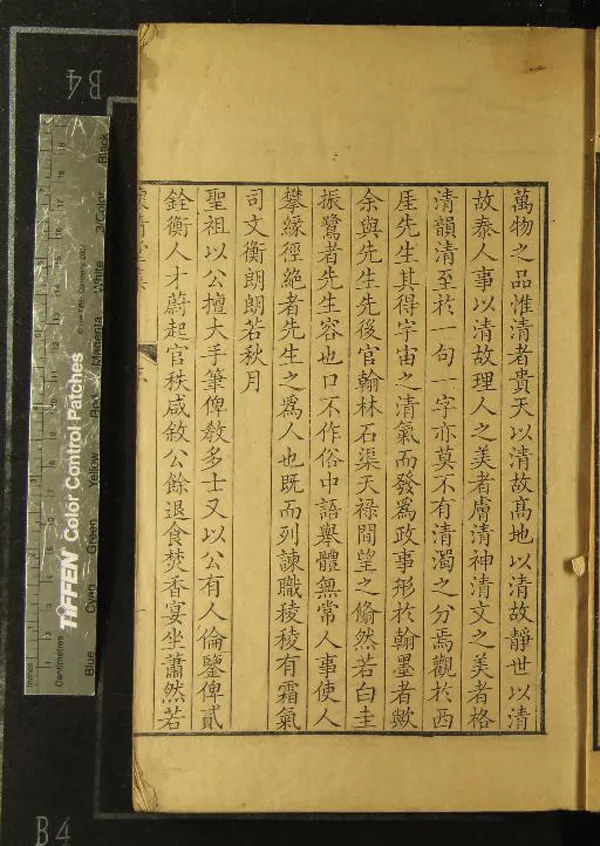 萬物之品惟清者貴天以清故髙地以清故靜世以清
故泰人事以清故理人之美者膚清神清文之美者格
清韻清至於一句一字亦莫不有清濁之分焉觀於西
厓先生其得宇宙之清氣而發爲政事形於翰墨者歟
余與先生先後官翰林石渠天禄間望之翛然若白圭
振鷺者先生容也口不作俗中語舉體無常人事使人
攀緣徑絶者先生之爲人也既而列諫職稜稜有霜氣
司文衡朗朗若秋月
聖祖以公擅大手筆俾教多士又以公有人倫鑒俾貳
銓衡人才蔚起官秩咸敘公餘退食焚香宴坐蕭然若
清堂集
B4
B4
TIFFEN Color Control Patches
Blue
Cyan
Green
Yellow
Red
Magenta
White
3/Color
Black
Centimetres
Inches